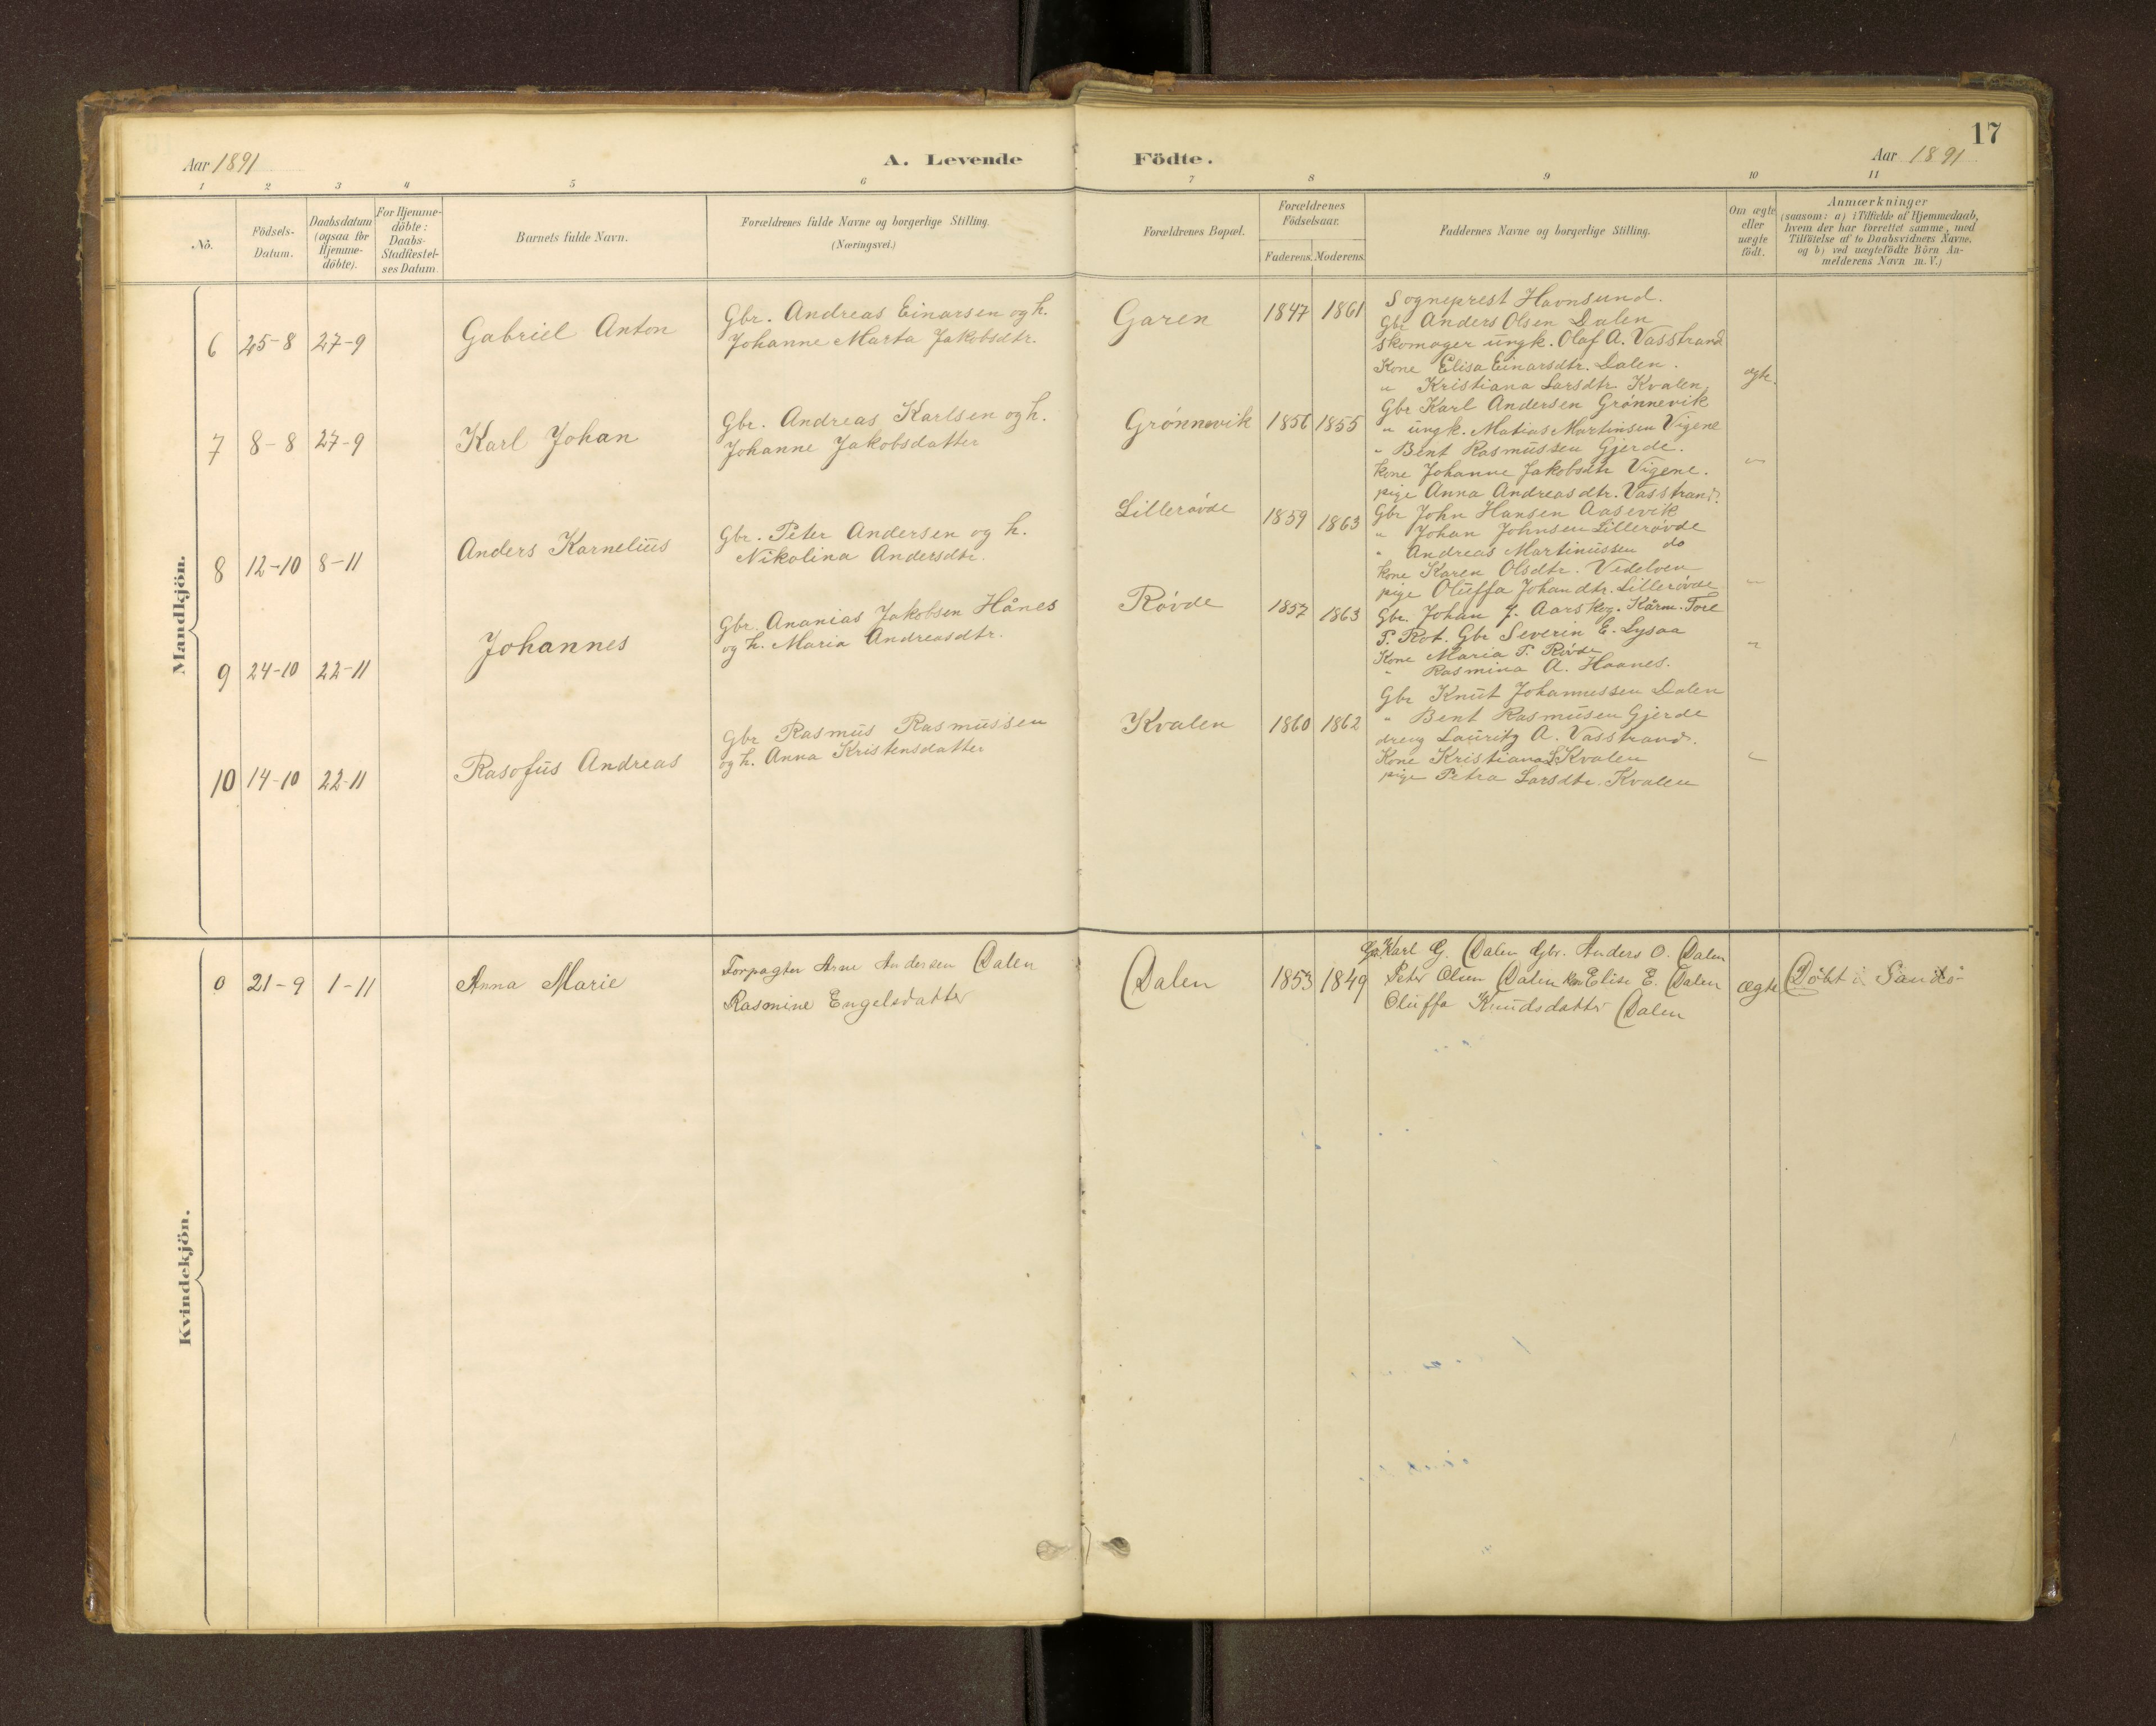 17
Aar 1891
A. Levende
Födte.
Aar 1891
1 2 3 4 5 6 7 8 9 10 11
No.
Födsels-Datum.
Daabsdatum (ogsaa for Hjemme-döbte).
For Hjemme-döbte: Daabs-Stadfæstel-ses Datum
Barnets fulde Navn.
Forældrenes fulde Navne og borgerlige Stilling.
(Næringsvei.)
Forældrenes Bopæl.
Forældrenes Födselsaar.
Faderens. Moderens.
Faddernes Navne og borgerlige Stilling.
Om ægte eller uægte födt.
Anmærkninger
(saasom: a) i Tilfælde af Hjemmedaab,
hvem der har forrettet samme, med
Tilföielse af to Daabsvidners Navne,
og b) ved uægtefödte Börn An-
melderens Navn m. V.)
Mandkjön.
6 25-8 27-9
Gabriel Anton
Gbr. Andreas Einarsen og h.
Johanne Marta Jakobsdtr.
Garen
1847 1861
Sogneprest Havnsund.
Gbr Anders Olsen Dalen
Skomager ungk. Olaf A. Vasstrand
Kone Elisa Einarsdtr. Dalen.
" Kristiana Larsdtr. Kvalen.
ægte.
7 8-8 27-9
Karl Johan
Gbr. Andreas Karlsen og h.
Johanne Jakobsdatter
Grønnevik
1856 1855
Gbr Karl Andersen Grønnevik
" ungk. Matias Martinsen Vigene
" Bent Rasmussen Gjerde.
Kone Johanne Jakobsdtr Vigene.
pige Anna Andreasdtr. Vasstrand.
"
8 12-10 8-11
Anders Karnelius
Gbr. Peter Andersen og h.
Nikolina Andersdtr.
Lillerøvde
1859 1863
Gbr John Hansen Aasevik
" Johan Johnsen Lillerøvde
" Andreas Martinussen do
Kone Karen Olsdtr.
pige Oluffa Johandtr. Lillerøvde
"
9 24-10 22-11
Johannes
Gbr. Ananias Jakobsen Hånes
og h. Maria Andreasdtr.
Røvde
1857 1863
Gbr. Johan J. Aarskog. Tore
P. Rot. Gbr Severin E. Lysaa
Kone Maria P. Røvde
" Rasmina A. Haanes.
"
10 14-10 22-11
Rasofus Andreas
Gbr Rasmus Rasmussen
og h. Anna Kristensdatter
Kvalen
1860 1862
Gbr Knut Johannessen Dalen
" Bent Rasmusen Gjerde
dreng Lauritz A. Vasstrand.
Kone Kristiana L. Kvalen
pige Petra Larsdtr. Kvalen
"
Kvindekjön.
0 21-9 1-11
Anna Marie
Forpagter Arne Andersen Dalen
Rasmine Engelsdatter
Dalen
1853 1849
Gbr. Karl G. Dalen Gbr. Anders O. Dalen
Peter Olsen Dalen Kon Elise E. Dalen
Oluffa Knudsdatter Dalen
ægte
Döbt i Sandö